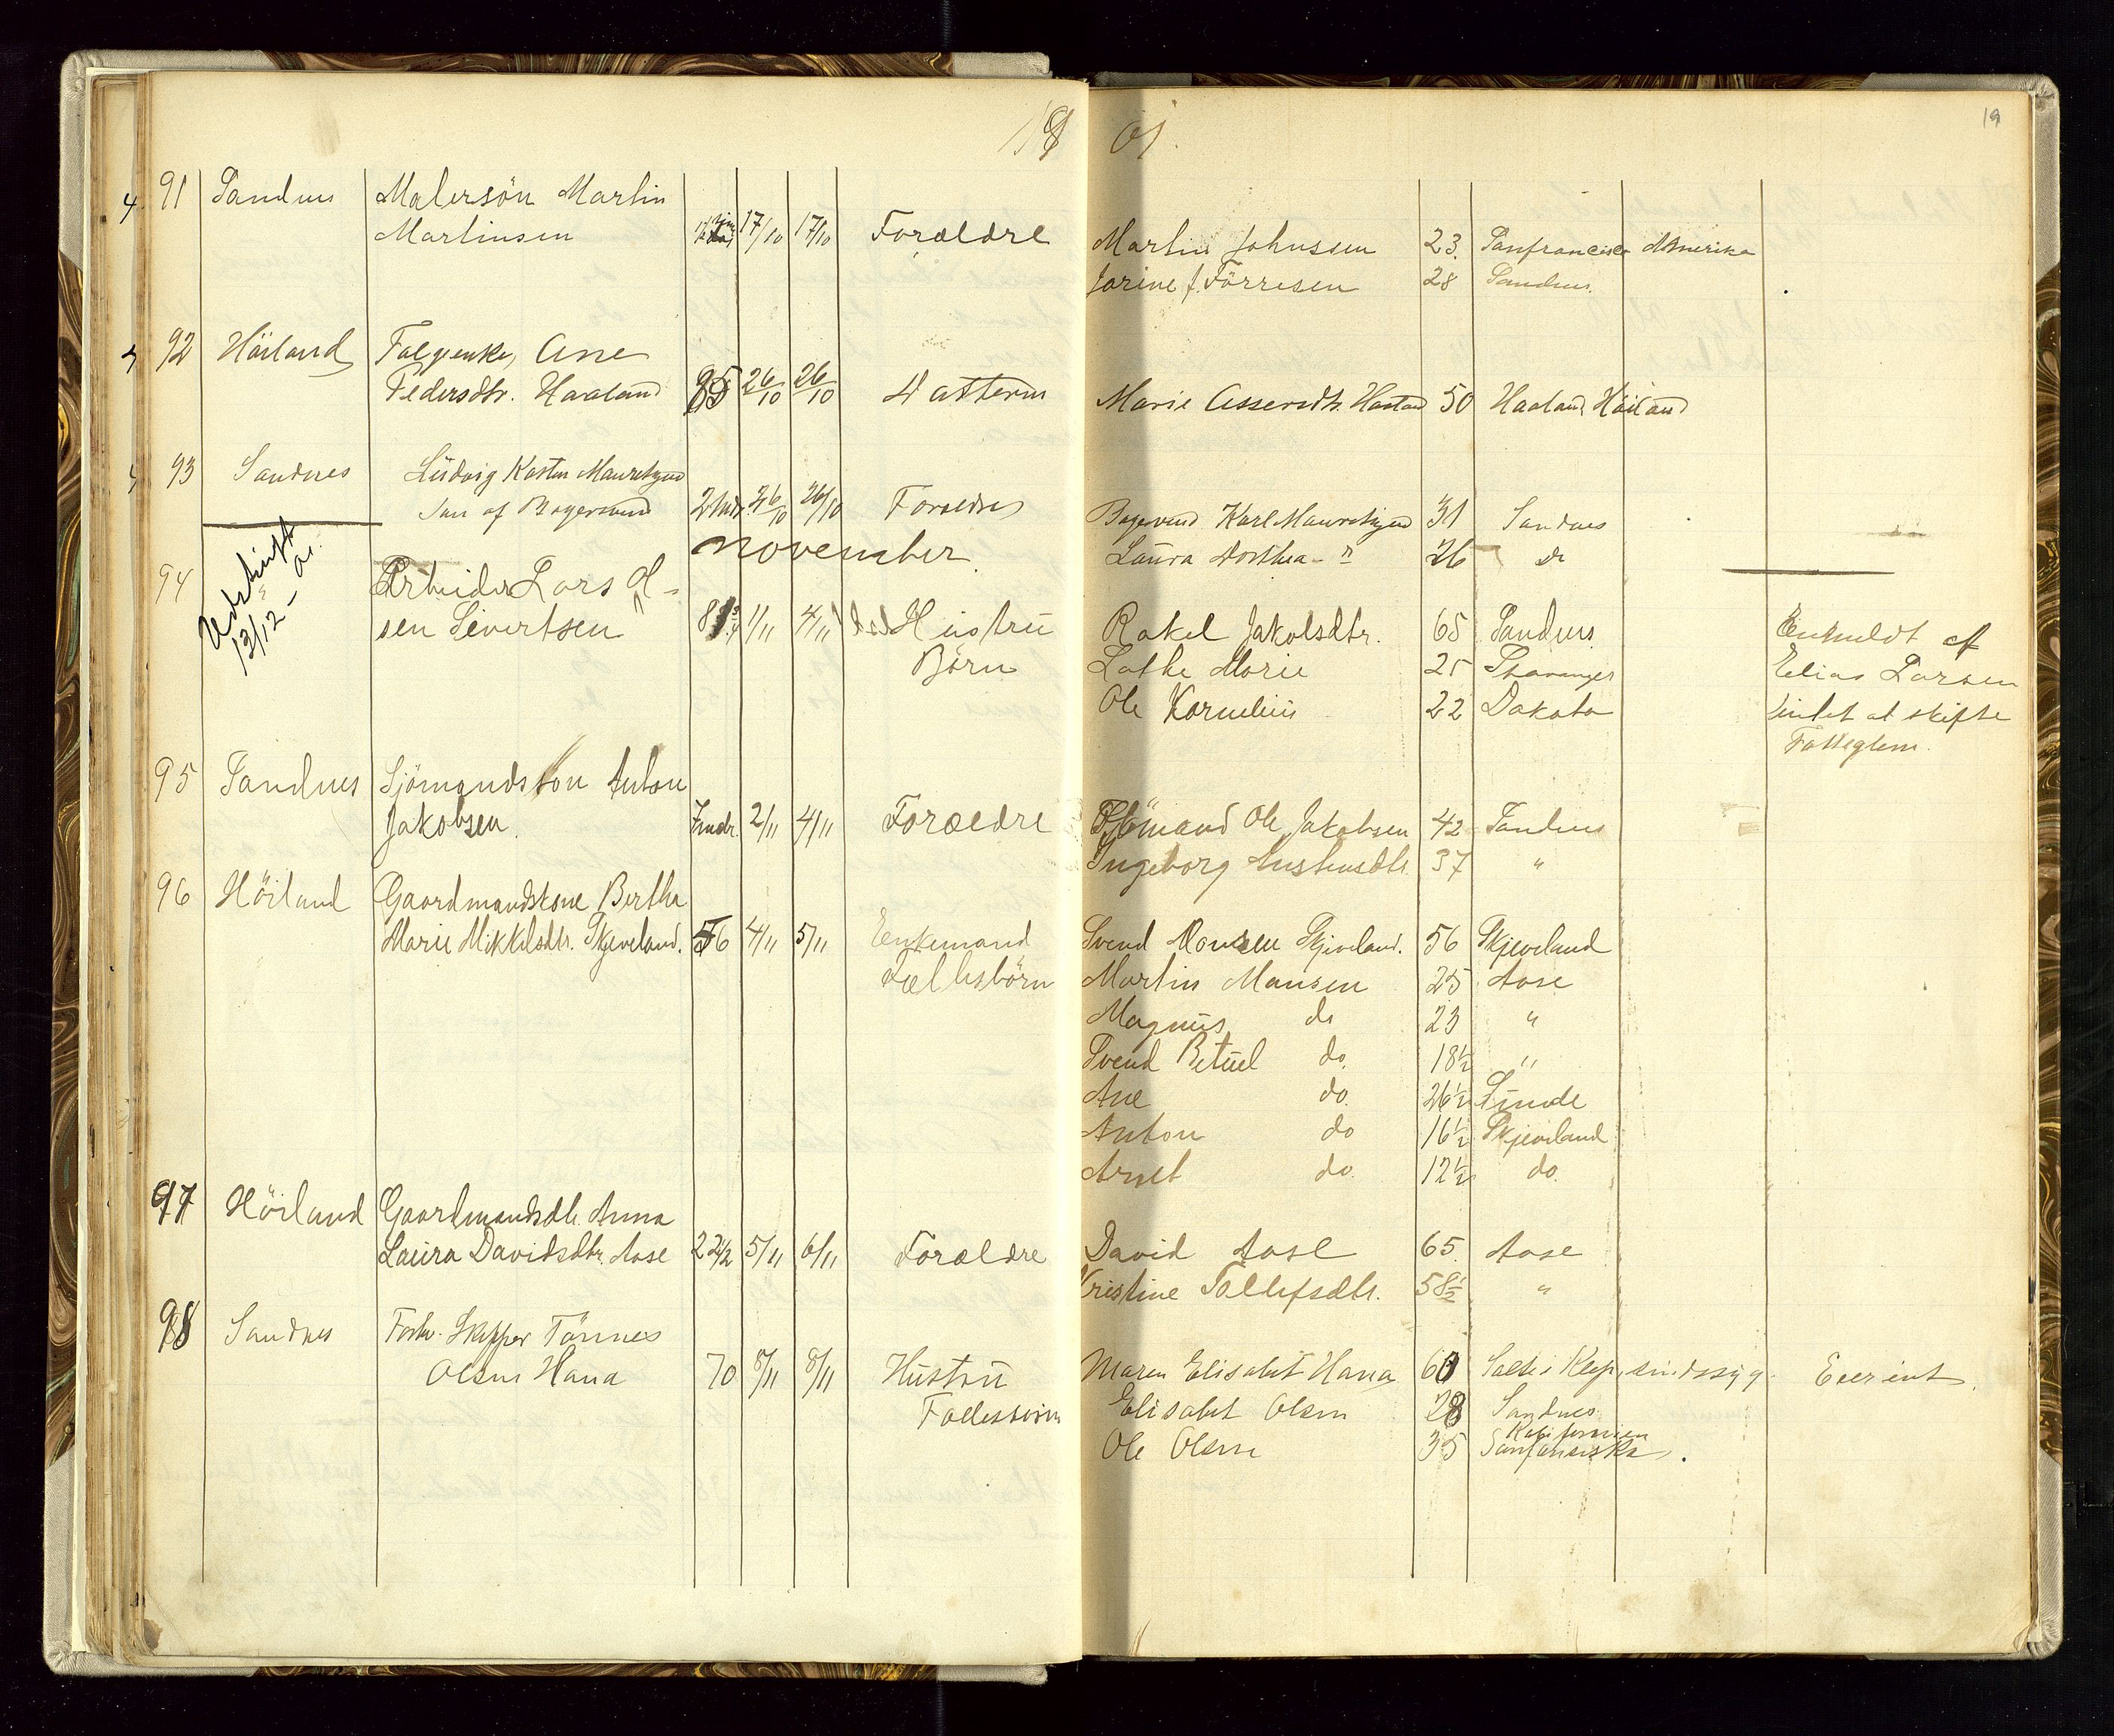 19
19 01.
4 91 Sandnes Malersön Martin
Martinsen 17/10 17/10 Forældre Martin Johnsen 23. Sanfrancisco Amerika
Jorine J. Törresen 28 Sandnes.
92 Höiland Folgeenke, Ane
Pedersdtr. Haaland 85 26/10 26/10 Datteren Marie Assersdtr. Haaland 50 Haaland Höiland
93 Sandnes Ludvig Karten
Søn af 2 mdr 26/10 26/10 Foreldres Karl 31 Sandnes
Laura Dorthea - " 26 do
november.
94 Udskrift 13/12 - 01. Arbeider Lars Ol-
sen Sivertsen 1/11 4/11 Hustru Rakel Jakobsdtr. 65 Sandnes Anmeldt af
Börn Lothe Marie 25 Stavanger Elias Larsen
Ole Kornelius 22 Dakota intet at skifte
Fattiglem.
95 Sandnes Sjömandssön Anton
Jakobsen. 7 mdr. 2/11 4/11 Forældre Sjömand Ole Jakobsen 42 Sandnes
Ingeborg Austensdtr. 37 "
96 Höiland Gaardmandskone Berthe
Marie Mikkelsdtr. Skjeveland. 56 4/11 5/11 Enkemand Svend Monsen Skjeveland. 56 Skjeveland
Fællesbörn Martin Monsen 25 Aase
Magnus do 23 "
Svend Betuel do. 18 1/2 "
Ane do. 26 1/2 Lunde
Anton do 16 1/2 Skjeveland
Arnet do. 12 1/2 do.
97 Höiland Gaardmandsdtr. Anna
Laura Davidsdtr. Aase 22 1/2 5/11 6/11 Forældre David Aase 65. Aase
Kristine Tollefsdtr. 58 1/2 "
98 Sandnes Forhv. Skipper Tönnes
Olsen Hana 70 8/11 8/11 Hustru Maren Elisabet Hana 60 i Klep, sindssyg.
Fællesbörn Elisabet Olsen 28 Sandnes
Kalifornien
Ole Olsen 35 Sanfansiska.